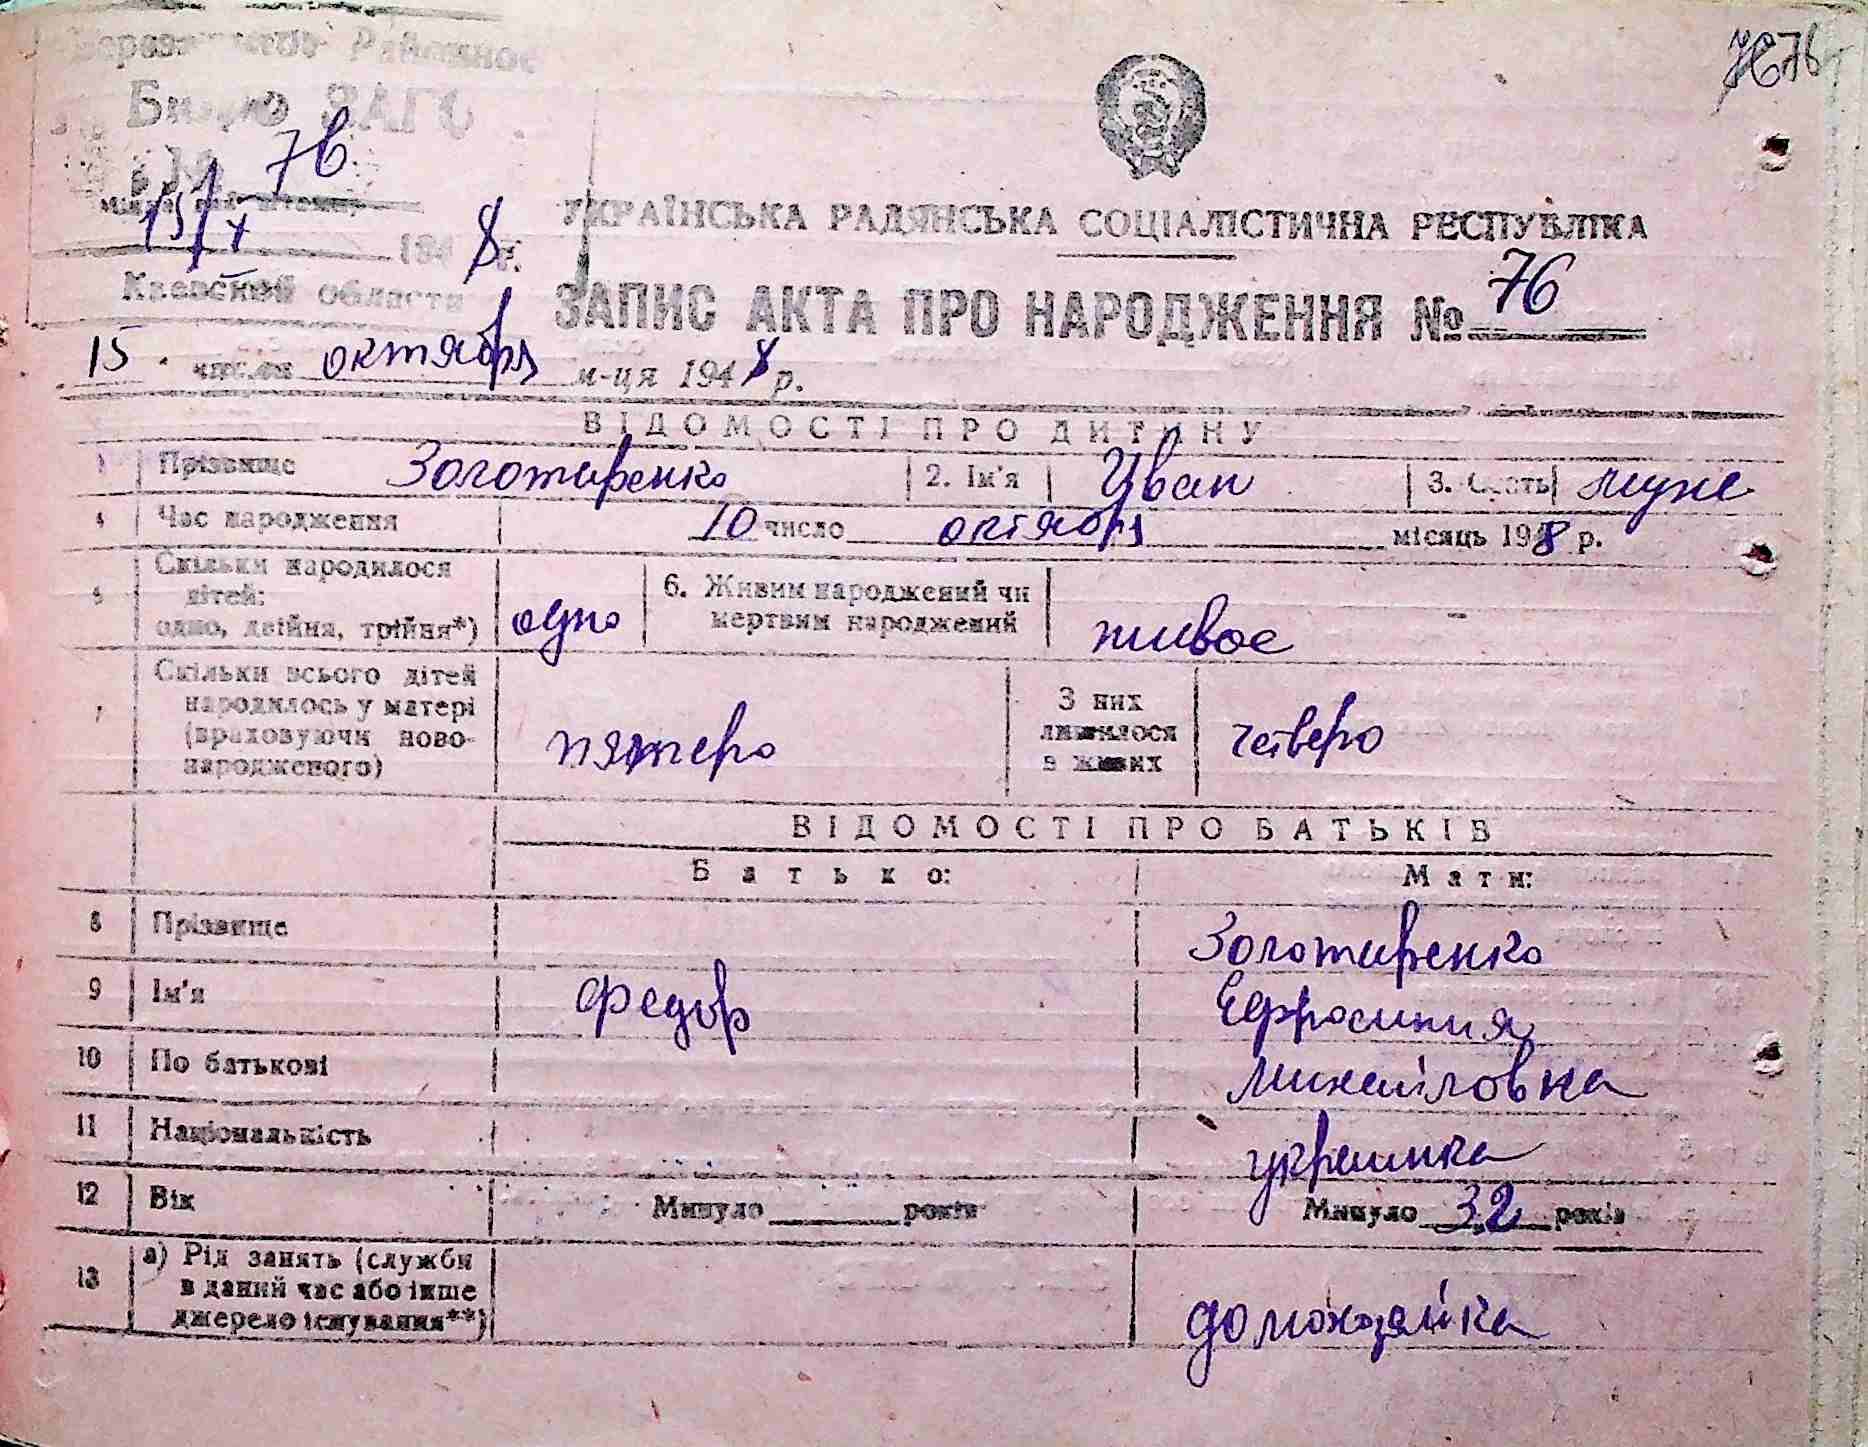 Районное
Бюро ЗАГС
76
15/X 1948 г.
Киевской области
7676
УКРАЇНСЬКА РАДЯНСЬКА СОЦІАЛІСТИЧНА РЕСПУБЛІКА
ЗАПИС АКТА ПРО НАРОДЖЕННЯ № 76
15 числа октября м-ця 1948 р.
ВІДОМОСТІ ПРО ДИТИНУ
1 Прізвище Золотаренко 2. Ім'я Иван 3. Стать муже
4 Час народження 10 число октября місяць 1948 р.
5 Скільки народилося
дітей:
одно, двійня, трійня*) одно
6. Живим народжений чи
мертвим народжений живое
7 Скільки всього дітей
народилось у матері
(враховуючи ново-
народженого) пятеро
З них
лишилося
в живих четверо
ВІДОМОСТІ ПРО БАТЬКІВ
Батько: Мати:
8 Прізвище Золотаренко
9 Ім'я Федор Ефросиния
10 По батькові Михайловна
11 Національність украинка
12 Вік Минуло років Минуло 32 років
13 а) Рід занять (служби
в даний час або інше
джерело існування**) домохозяйка